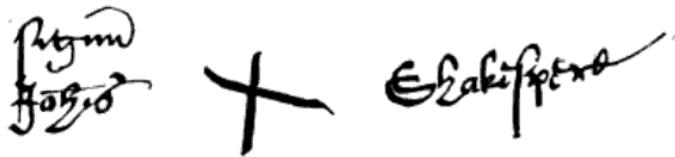 signum
Johis X Shakispere